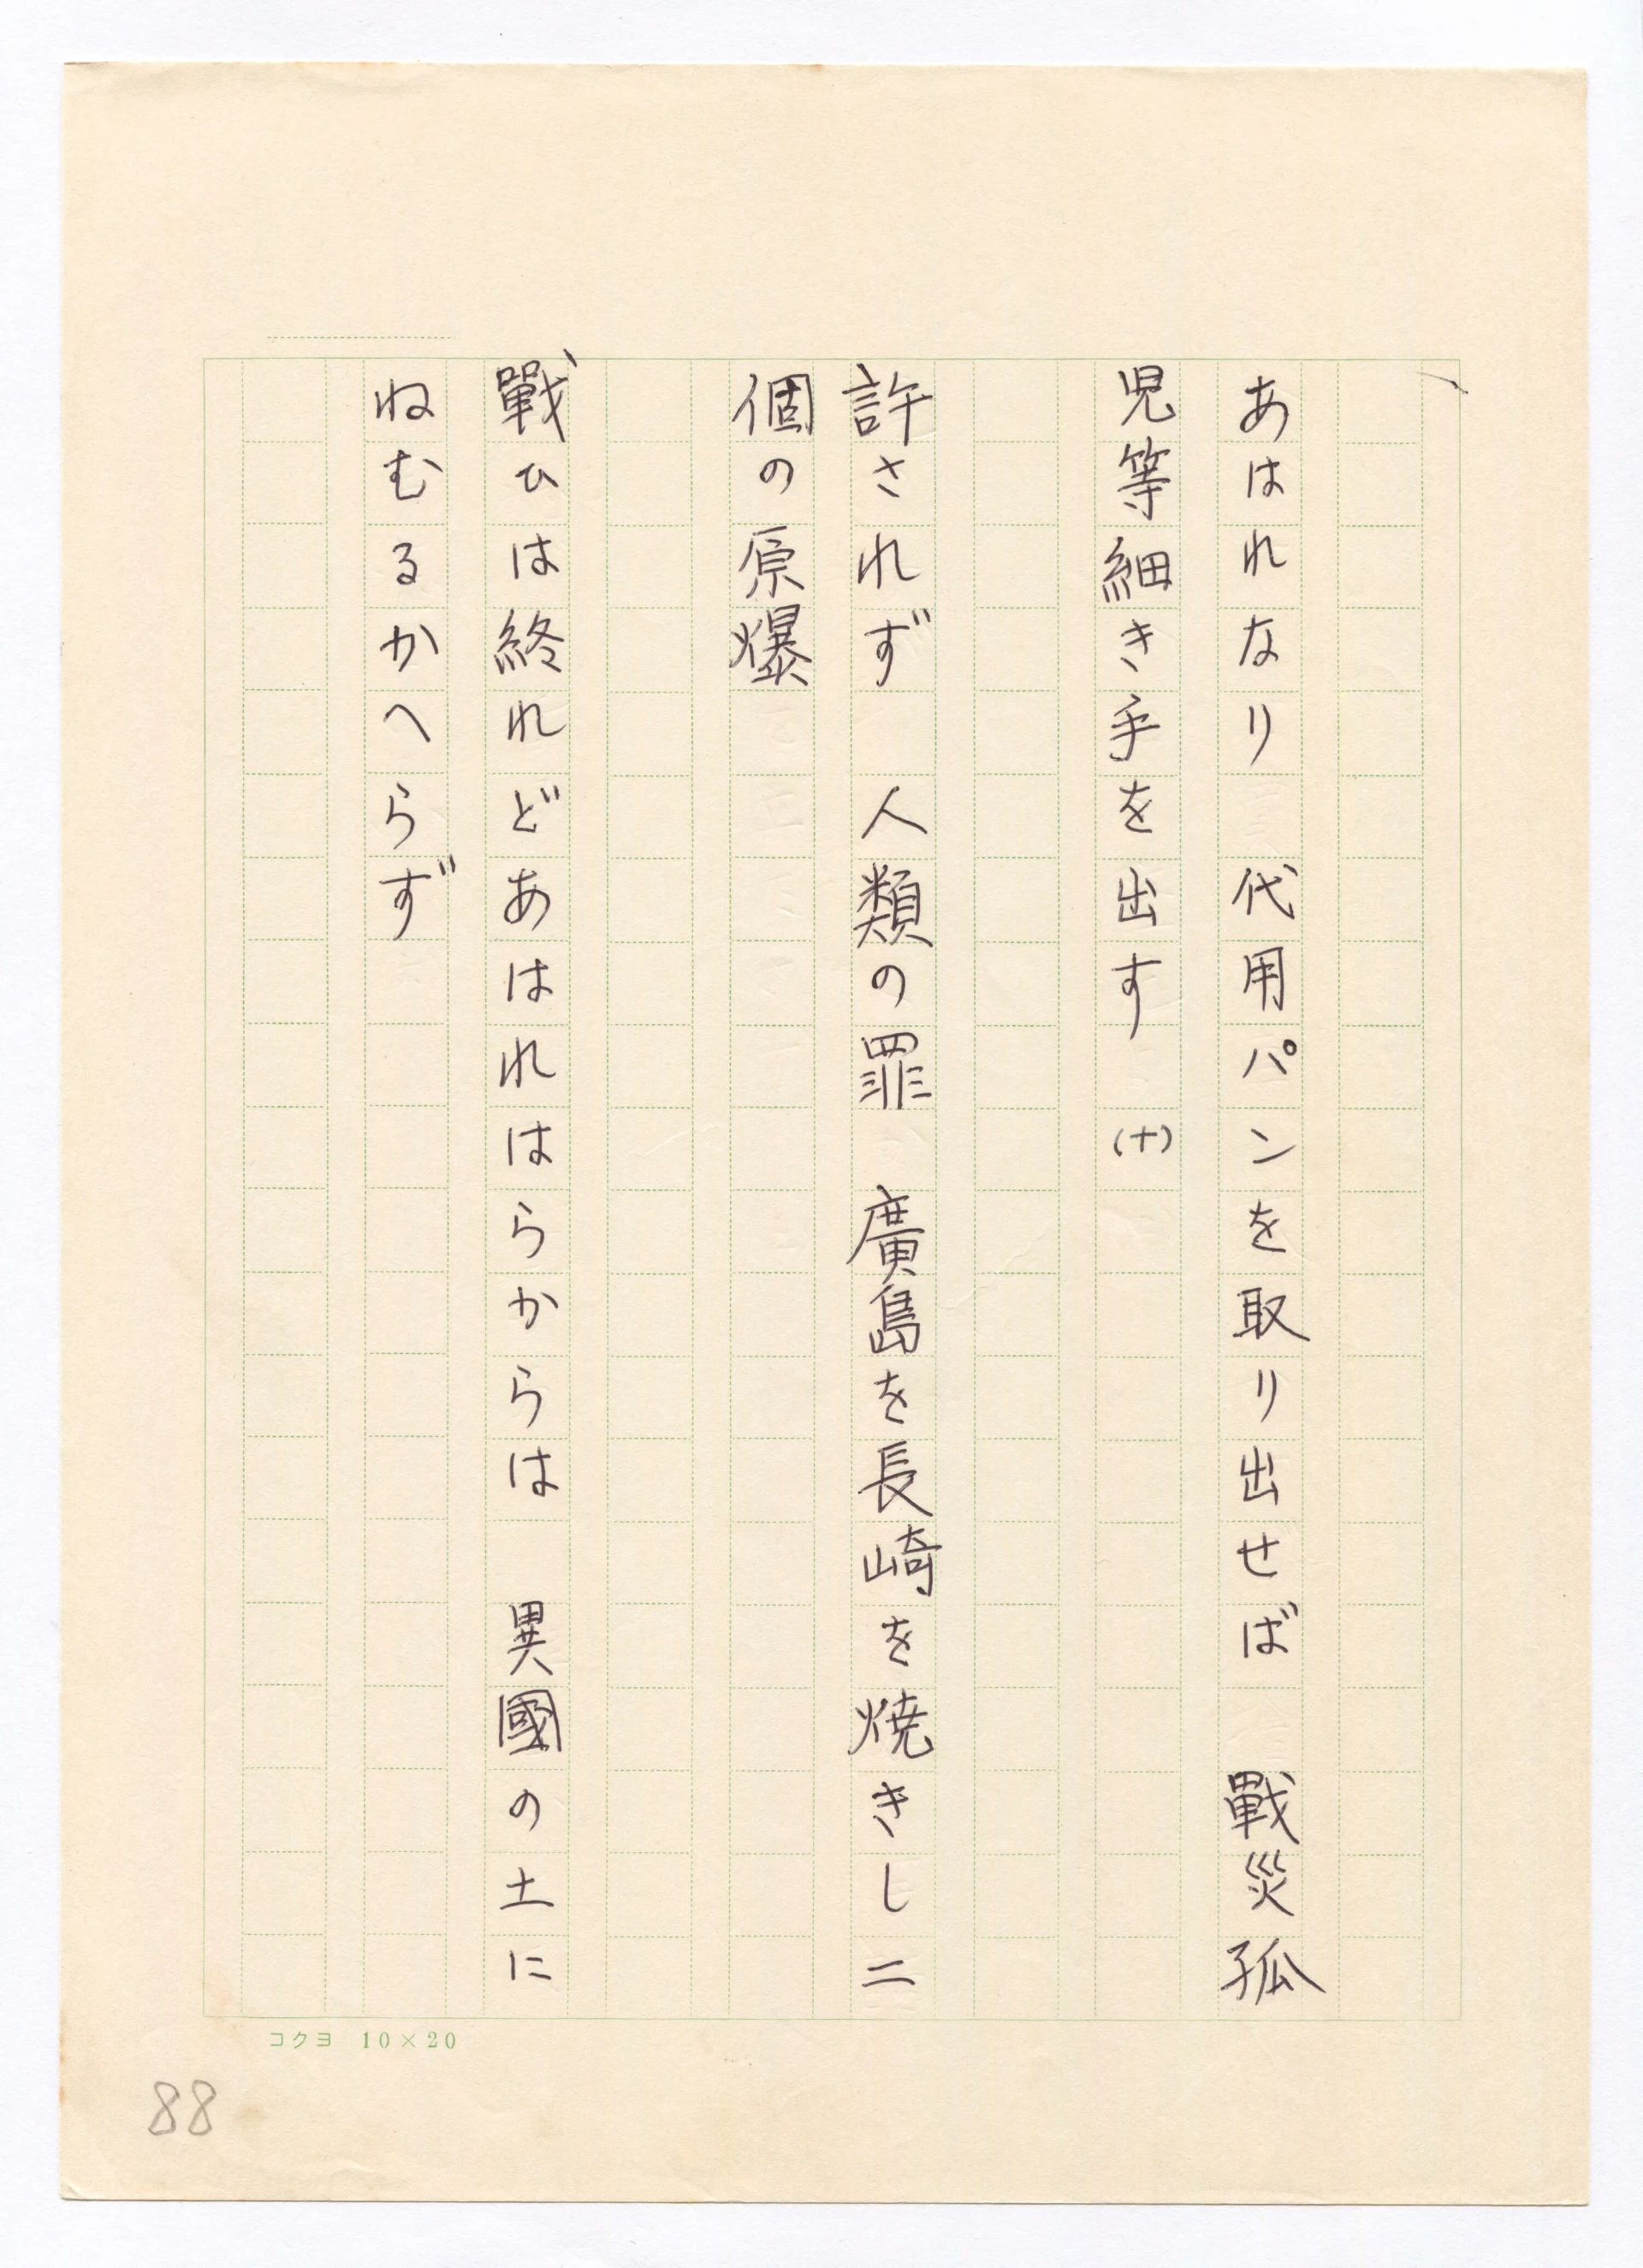 あはれなり　代用パンを取り出せば　戰災孤
児等細き手を出す　(十)
許されず　人類の罪　廣島を長崎を焼きし二
個の原爆
戰ひは終れどあはれはらからは　異國の土に
ねむるかへらず
コクヨ　10×20
88